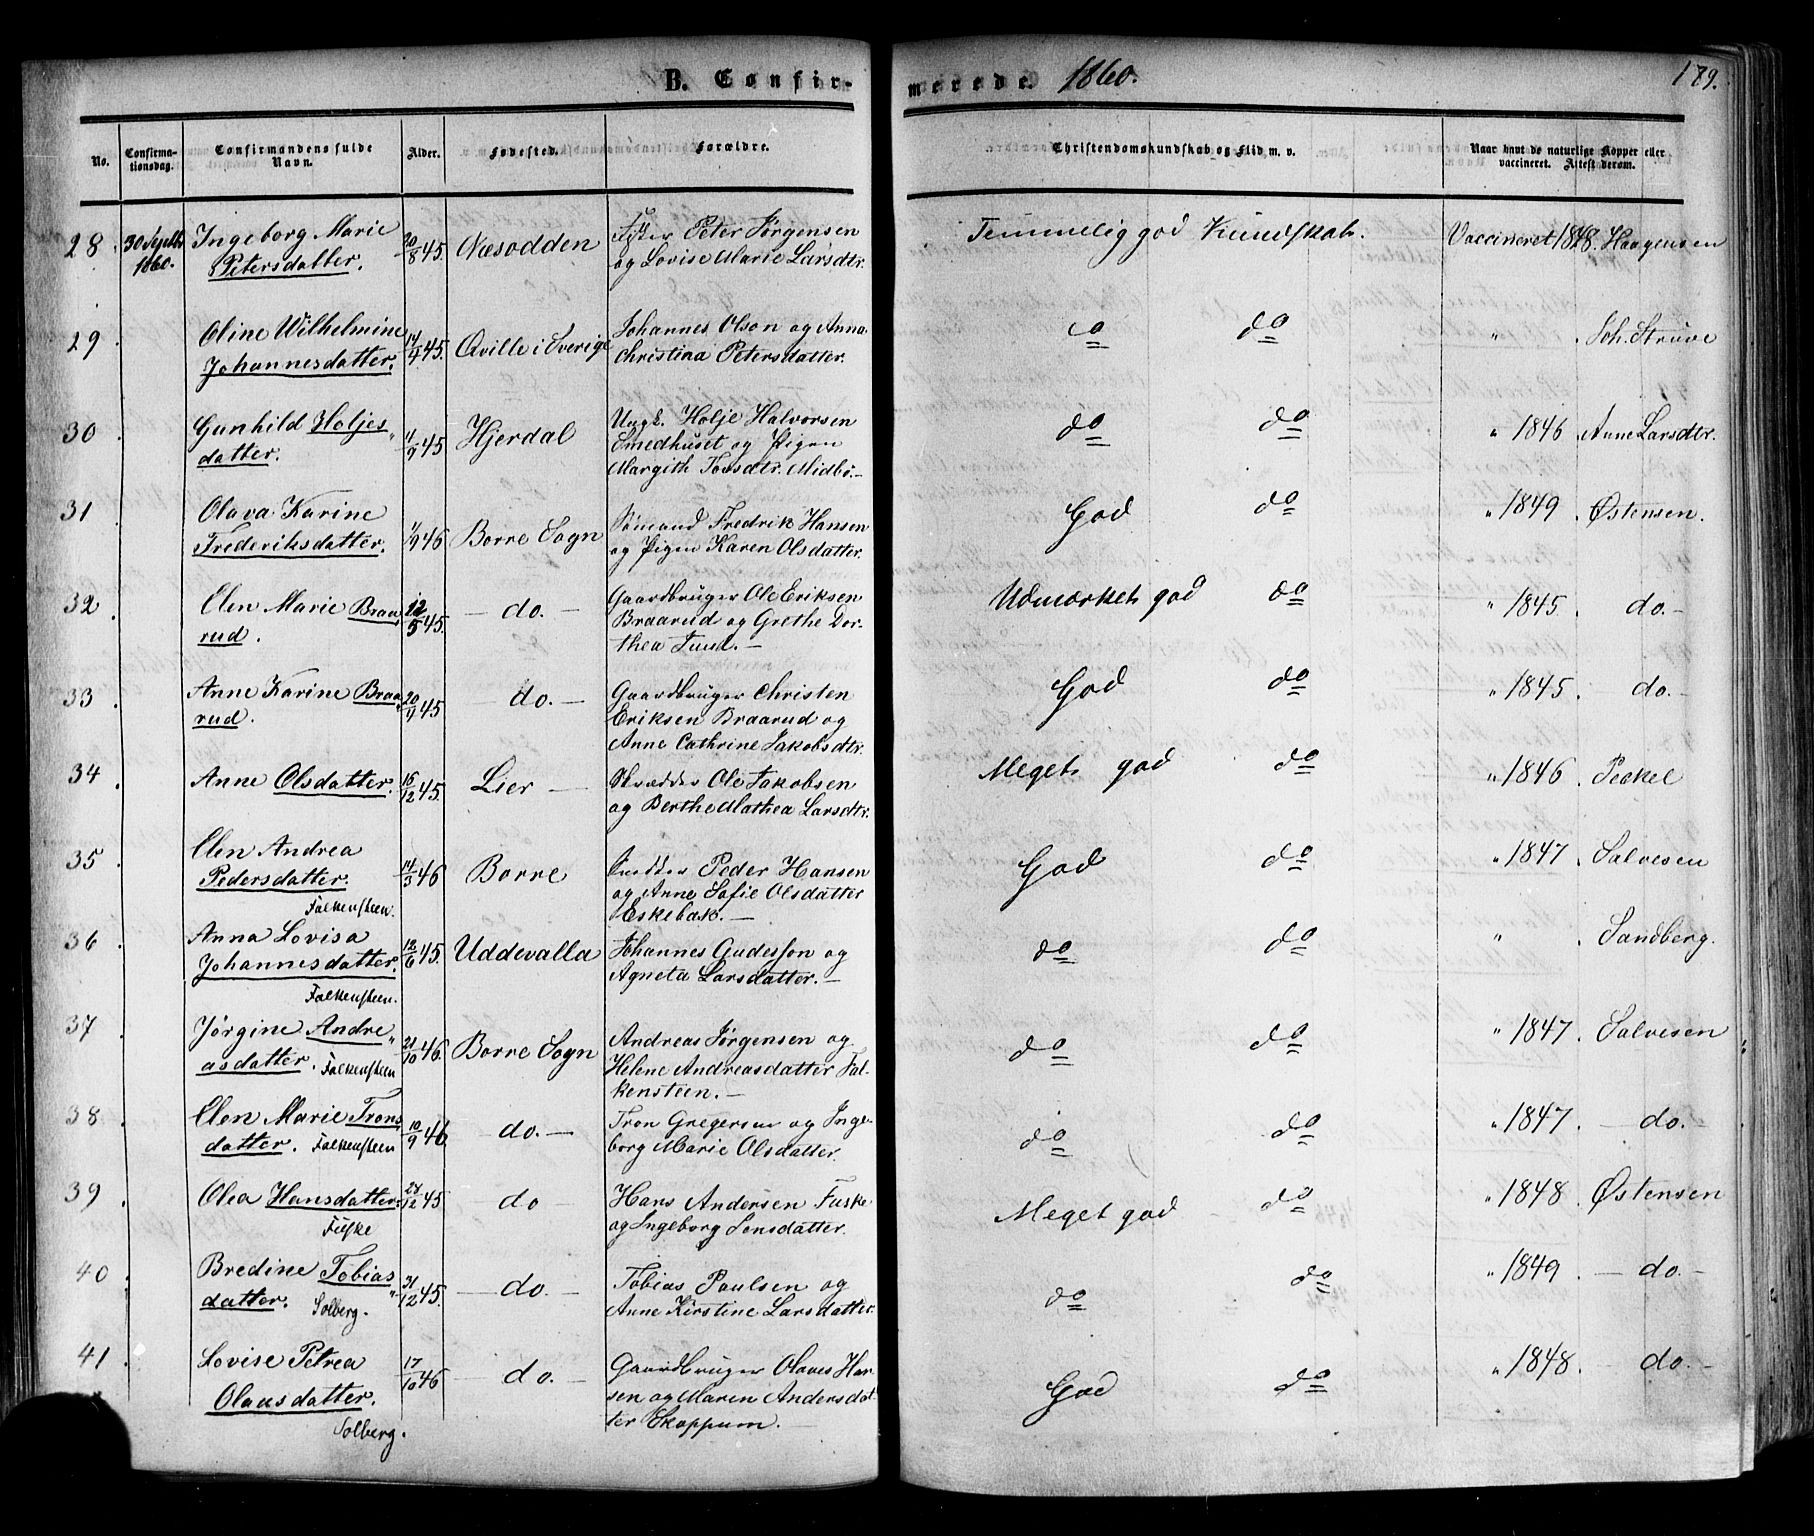 B. Confirmerede. 1860.
179.
No. Confirmationsdag. Confirmandens fulde Navn. Alder. Fødested. Forældre. Christendomskundskab og Flid m. v. Naar havt de naturlige Kopper eller vaccineret. Attest derom.
28. 30 Septbr 1860. Ingeborg Marie 20/8 45 Næsodden Fisker Peter Jørgensen Temmelig god Kundskab. Vaccineret 1848. Haagensen
Petersdatter. og Lovise Marie Larsdtr.
29 Oline Wilhelmine 14/4 45. Qville i Sverige Johannes Olson og Anna do do " Joh. Struve
Johannesdatter. Christina Petersdatter.
30 Gunhild Holjes 45 Hjerdal Ungk. Holje Halvorsen do do " 1846 Anne Larsdtr.
datter. Smedhuset og Pigen
Margith Tovsdtr. Midbø.
31 Olava Karine 1/9 46 Borre Sogn Sømand Fredrik Hansen God do " 1849. Østensen.
Frederiksdatter. og Pigen Karen Olsdatter.
32 Elen Marie Braa 12/5 45. do. Gaardbruger Ole Eriksen Udmærket god do " 1845. do.
rud. Braarud og Grethe Dor-
thea Lund.
33 Anne Karine Braa 20/9 45 do. Gaardbruger Christen God do " 1845. do.
rud. Eriksen Braarud og
Anne Cathrine Jakobsdtr.
34 Anne Olsdatter. 16/12 45. Lier Skrædder Ole Jakobsen Meget god do " 1846. Peckel
og Berthe Mathea Larsdtr.
35 Elen Andrea 14/3 46 Borre Snedker Peder Hansen God do " 1847. Salvesen
Pedersdatter. og Anne Sofie Olsdatter
Falkensteen. Eskebæk.
36 Anna Lovisa 12/6 45. Uddevalla Johannes Gudesson og do do " Sandberg.
Johannesdatter. Agneta Larsdatter.
Falkensteen.
37 Jørgine Andre 21/10 46 Borre Sogn Andreas Jørgensen og do do " 1847. Salvesen
asdatter. Falkensteen Helene Andreasdatter Fal-
kensteen.
38 Elen Marie Trons 10/9 46 do. Tron Gregersen og Inge- do do " 1847. do.
datter. Falkensteen borg Marie Olsdatter.
39 Olea Hansdatter. 12 45 do Hans Andersen Fuske Meget god do " 1848. Østensen
Fuske og Ingeborg Jensdatter.
40 Bredine Tobias 31/12 45. do. Tobias Paulsen og do do " 1849. do.
datter. Solberg. Anne Kirstine Larsdatter.
41. Lovise Petrea 17/10 46 do. Gaardbruger Olaus Han- God do " 1848. do.
Olausdatter. sen og Maren Andersdat-
Solberg. ter Skoppum.